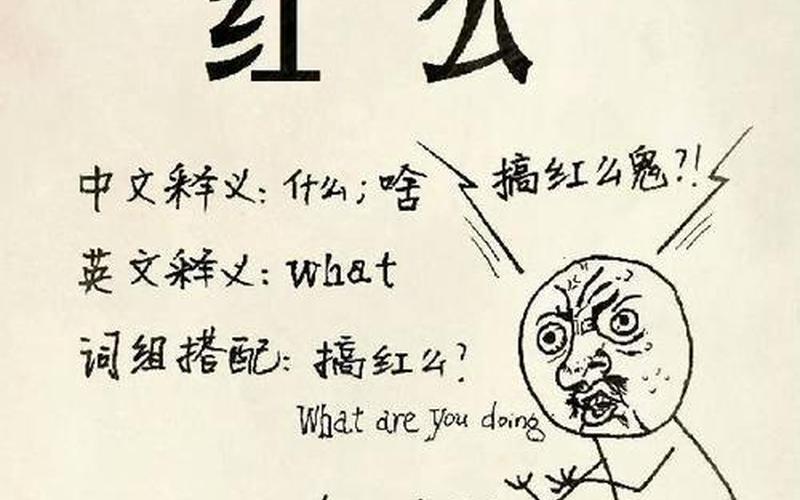 红么
搞红么鬼?!
中文释义：什么；啥
英文释义：what
词组搭配：搞红么?
What are you doing